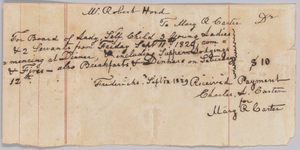 Mr. Robert Hord
To Mary R Carter Dr
For Board of Lady, Self, Child, 2 Young Ladies
& 2 Servants from Friday Septr 11th 1829, com-
mencing at Dinner, & including Supper, Lodging
& Fires - also Breakfasts & Dinners on Saturday
12th $10
Fredericks. Sept 12 1829 Received Payment
Charles L. Carter
for
Mary R Carter